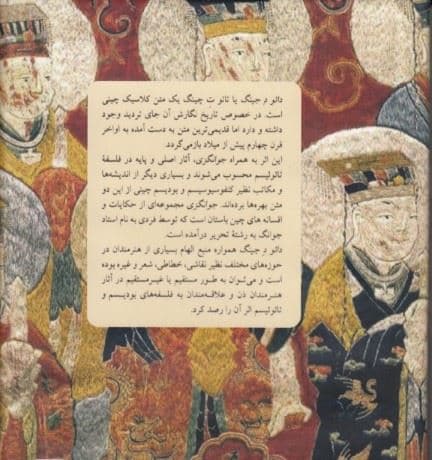 دائو د جینگ یا تائو ت چینگ یک متن کلاسیک چینی
است. در خصوص تاریخ نگارش آن جای تردید وجود
داشته و دارد اما قدیمی‌ترین متن به دست آمده به اواخر
قرن چهارم پیش از میلاد بازمی‌گردد.
این اثر به همراه جوانگزی، آثار اصلی و پایه در فلسفهٔ
تائوئیسم محسوب می‌شوند و بسیاری دیگر از اندیشه‌ها
و مکاتب نظیر کنفوسیوسیسم و بودیسم چینی از این دو
متن بهره‌ها برده‌اند. جوانگزی مجموعه‌ای از حکایات و
افسانه های چین باستان است که توسط فردی به نام استاد
جوانگ به رشتهٔ تحریر درآمده است.
دائو د جینگ همواره منبع الهام بسیاری از هنرمندان در
حوزه‌های مختلف نظیر نقاشی، خطاطی، شعر و غیره بوده
است و می‌توان به طور مستقیم یا غیرمستقیم در آثار
هنرمندان ذن و علاقه‌مندان به فلسفه‌های بودیسم و
تائوئیسم اثر آن را رصد کرد.